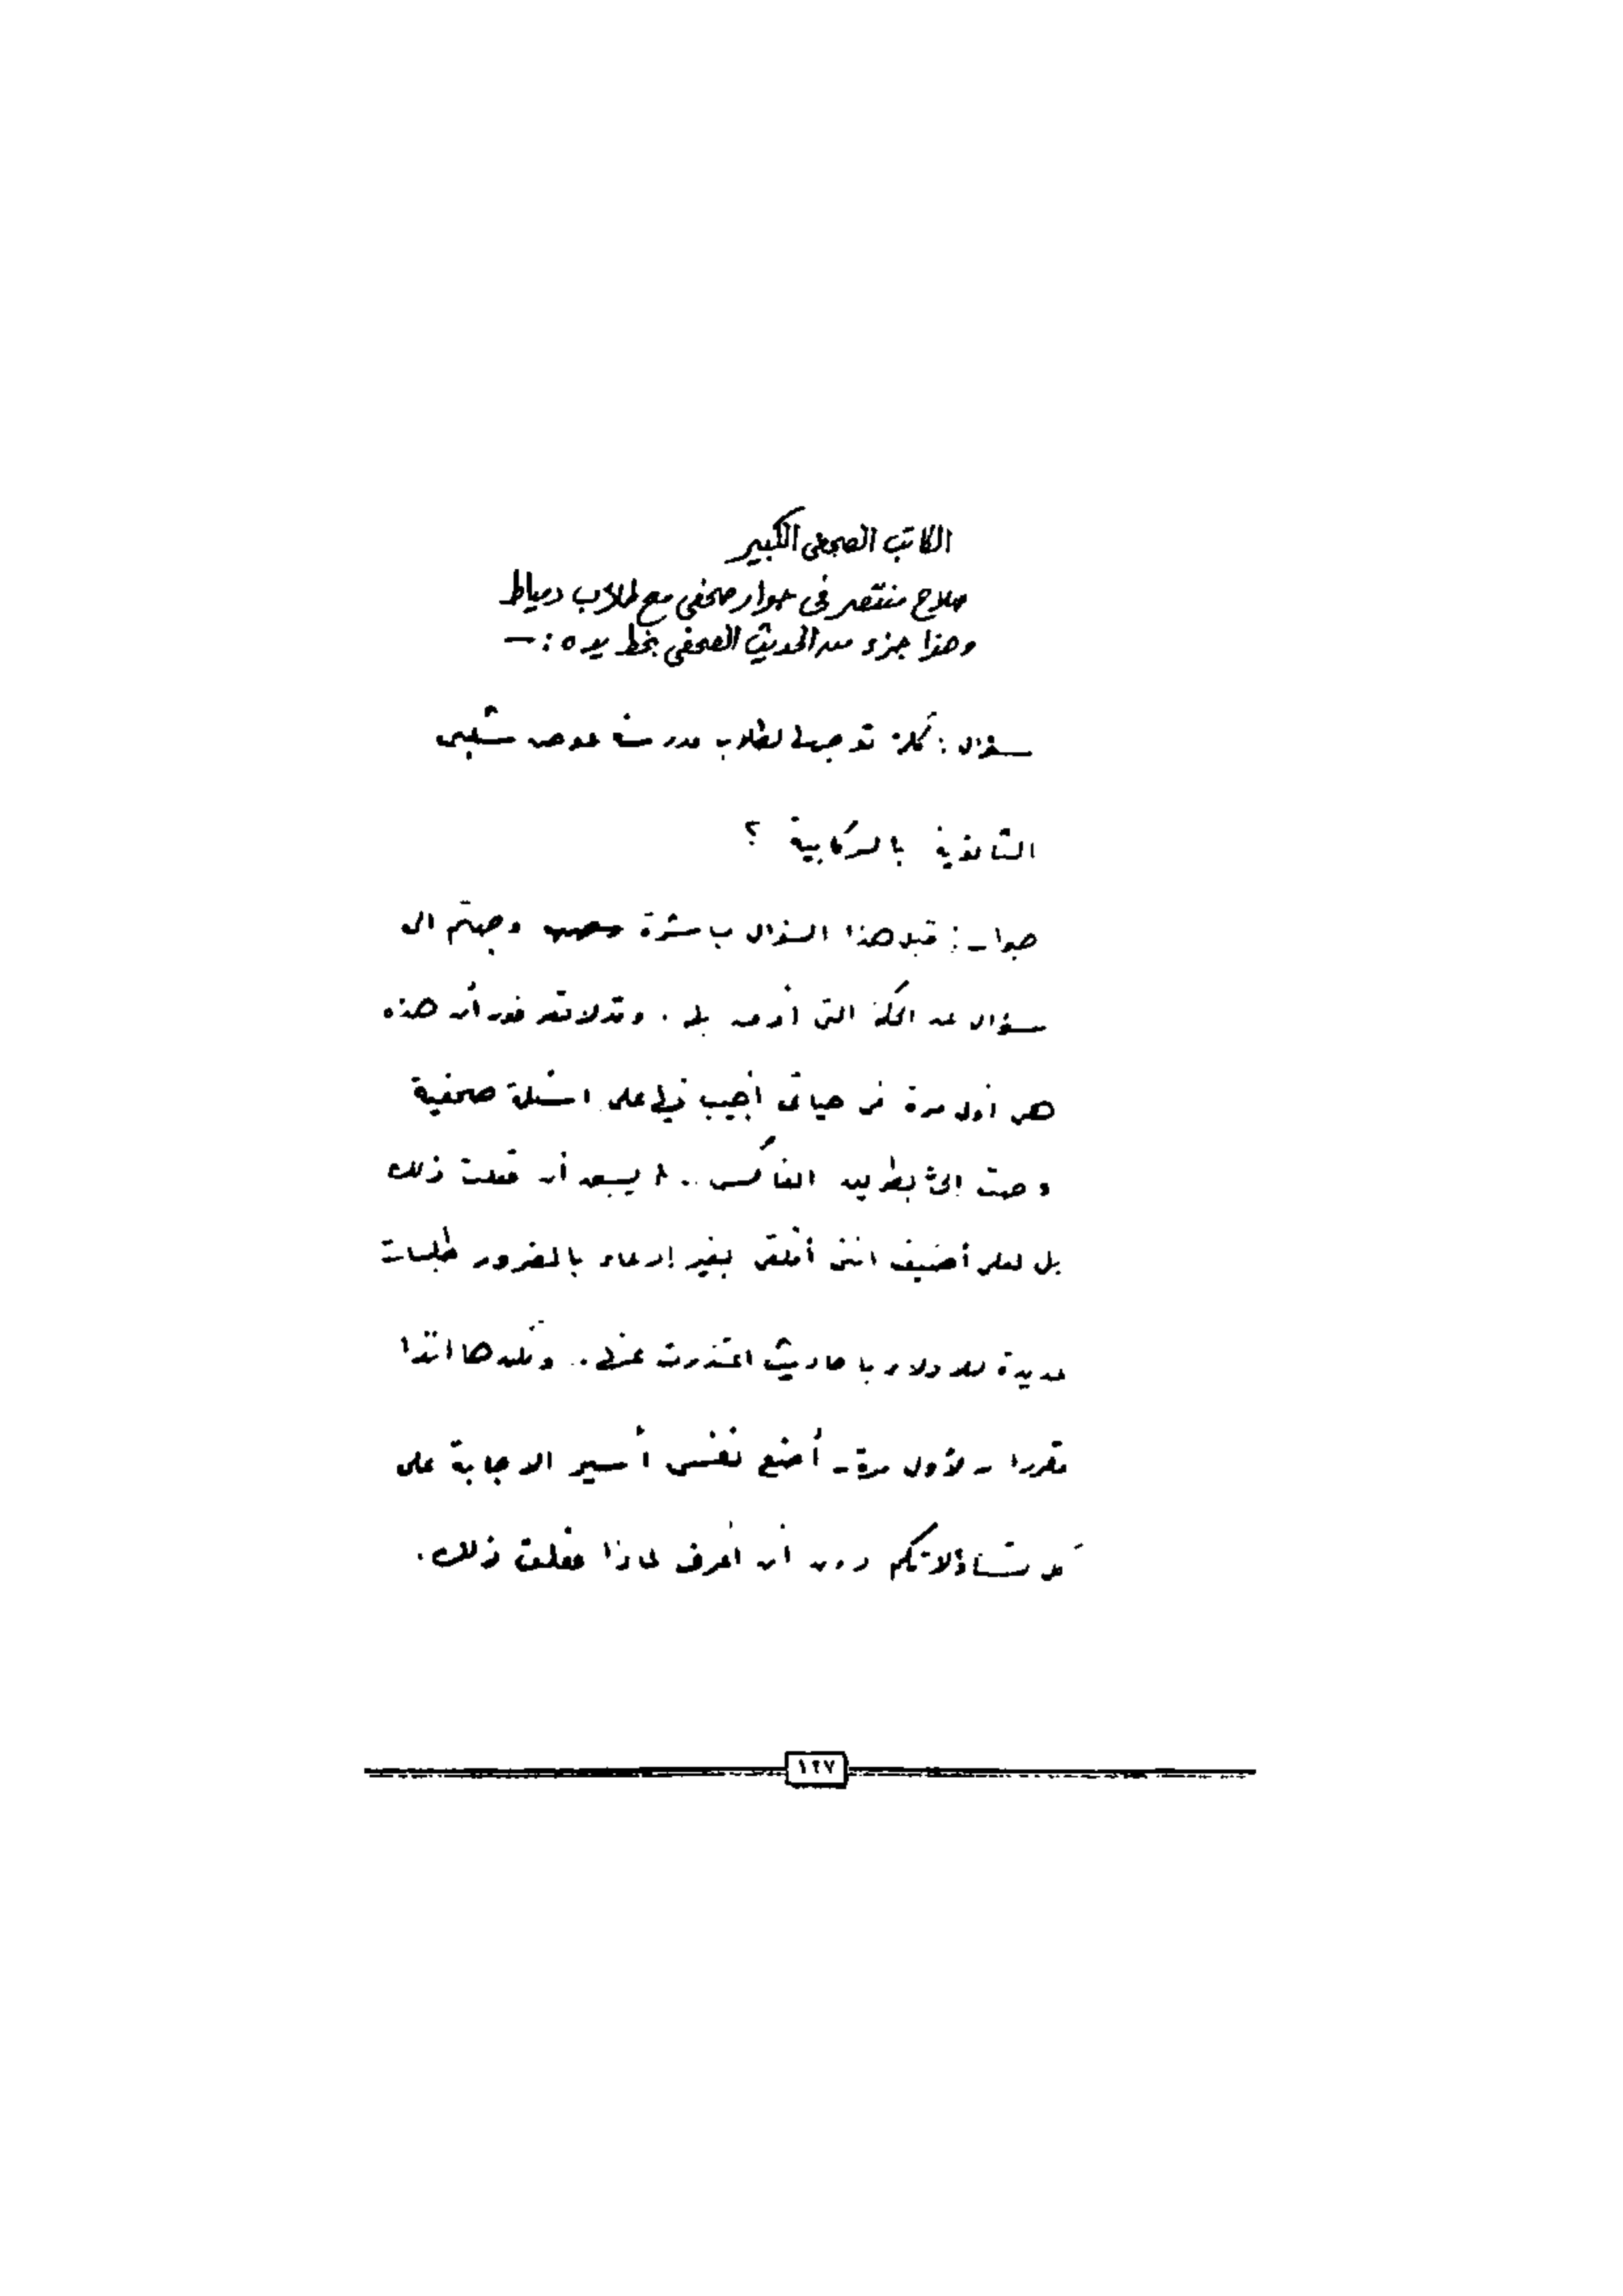 الكاتب الصحفى الكبير
صلاح منتصر فى حوار صحفى مع طلاب دمياط
وهذا جزء من الحديث الصحفى بخط يده :ـ
سؤال : كلمة توجهها لطلاب مدرسة عوض شلبى
الثانوية بالركابية ؟
جواب : قبل هذا السؤال مباشرة وجهتم الى
سؤال عن الحكمة التى أومن بها . وقد لا تعرفون أن هذه
هى أول مرة فى حياتى أجيب فيها على اسئلة صحفية
وجهت إلى بطريق الفاكس .. لم يسبق أن فعلت ذلك
بل لعلى أضيف اننى أتلقى بغير إدعاء بالغرور طلبات
عديدة للادلاء باحاديث اعتذرت عنها .. ولكن ها انذا
مقررا ـ لأول مرة ـ أضع نفسى أسير الاجابة على
كل تساؤلاتكم دون أن أعرف لماذا فعلت ذلك .
١٢٧